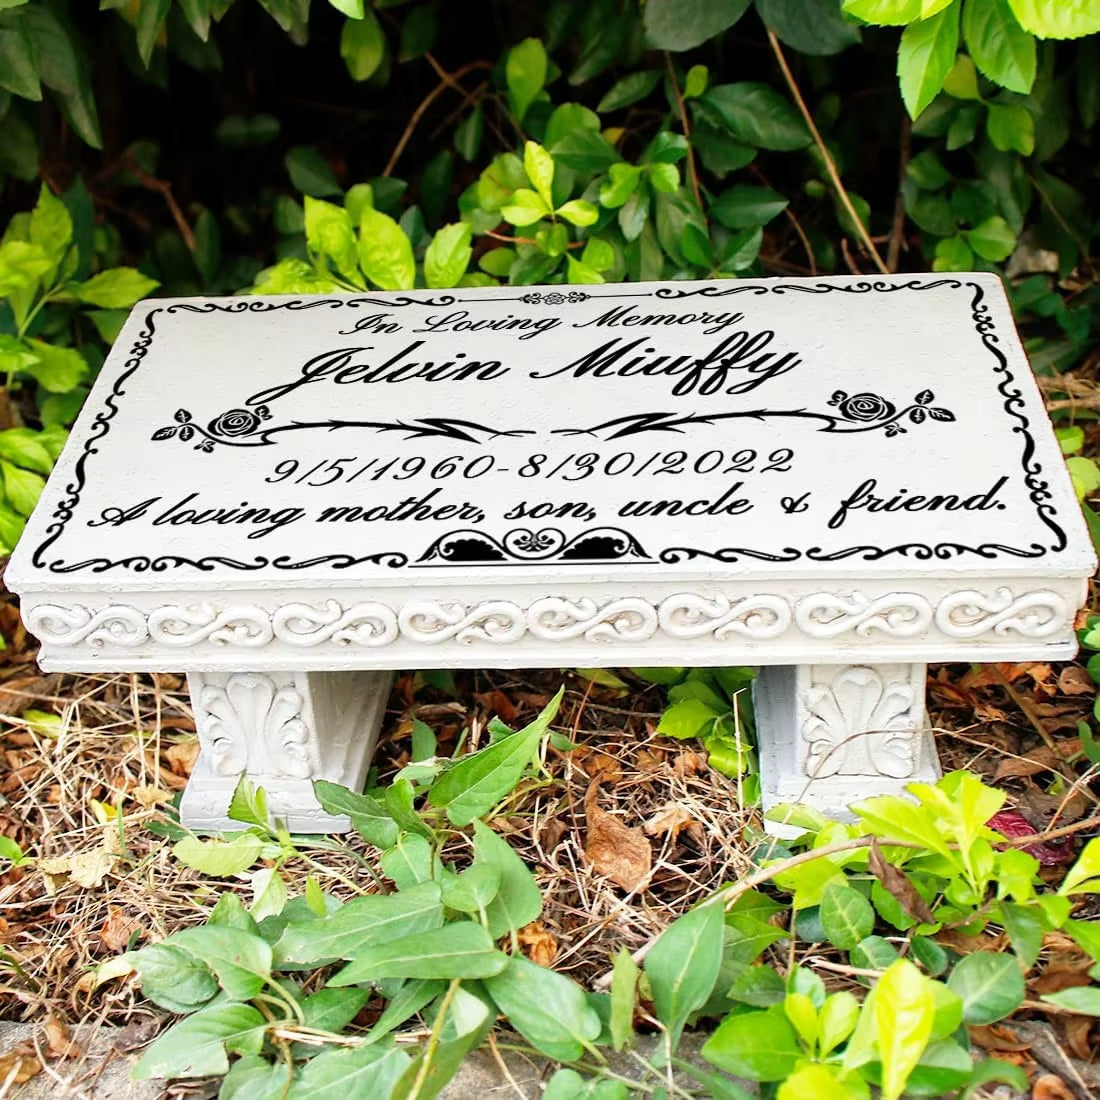 In Loving Memory
Jelvin Miuffy
9/5/1960-8/30/2022
A loving mother, son, uncle & friend.